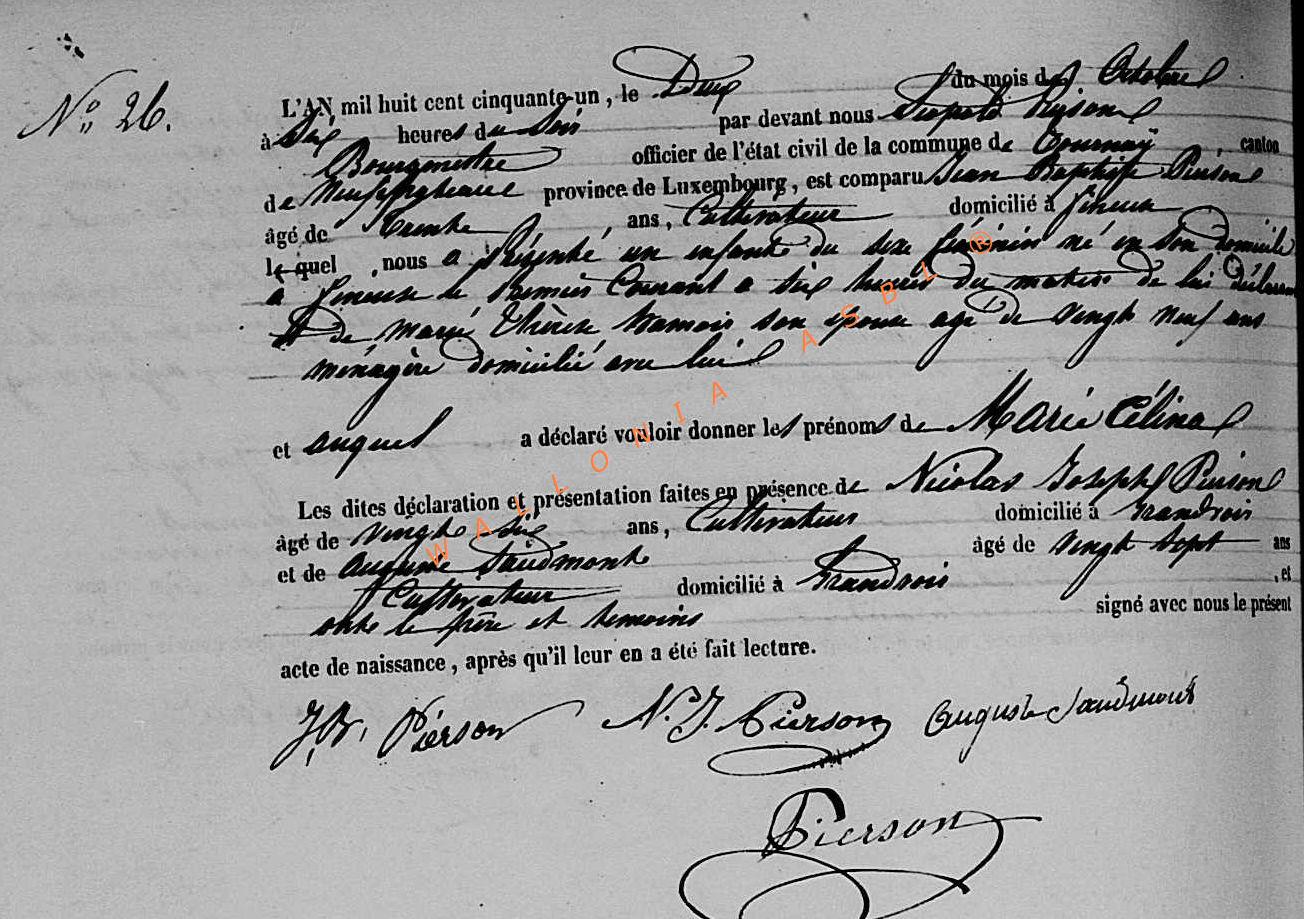 N° 26.
L'AN mil huit cent cinquante-un, le Deux du mois d' Octobre
à Six heures du Soir par devant nous Léopold Pierson
Bourgmestre officier de l'état civil de la commune de Tournay, canton
de Neufchateau province de Luxembourg, est comparu Jean Baptiste Pierson
âgé de Trente ans, Cultivateur domicilié à
lequel nous a Présenté un enfant du sexe féminin né en son domicile
à le Premier Courant a dix heures du matin de lui déclarant
et de marie Thérèse son epouse agé de vingt neuf ans
ménagère domicilié avec lui
et auquel a déclaré vouloir donner les prénoms de Marie Célina
Les dites déclaration et présentation faites en présence de Nicolas Joseph Pierson
âgé de vingt six ans, Cultivateur domicilié à Grandvoir
et de Auguste âgé de vingt sept ans
Cultivateur domicilié à Grandvoir, et
ont le père et temoins signé avec nous le présent
acte de naissance, après qu'il leur en a été fait lecture.
J.B. Pierson N.J. Pierson Auguste
Pierson
WALLONIA ASBL ®